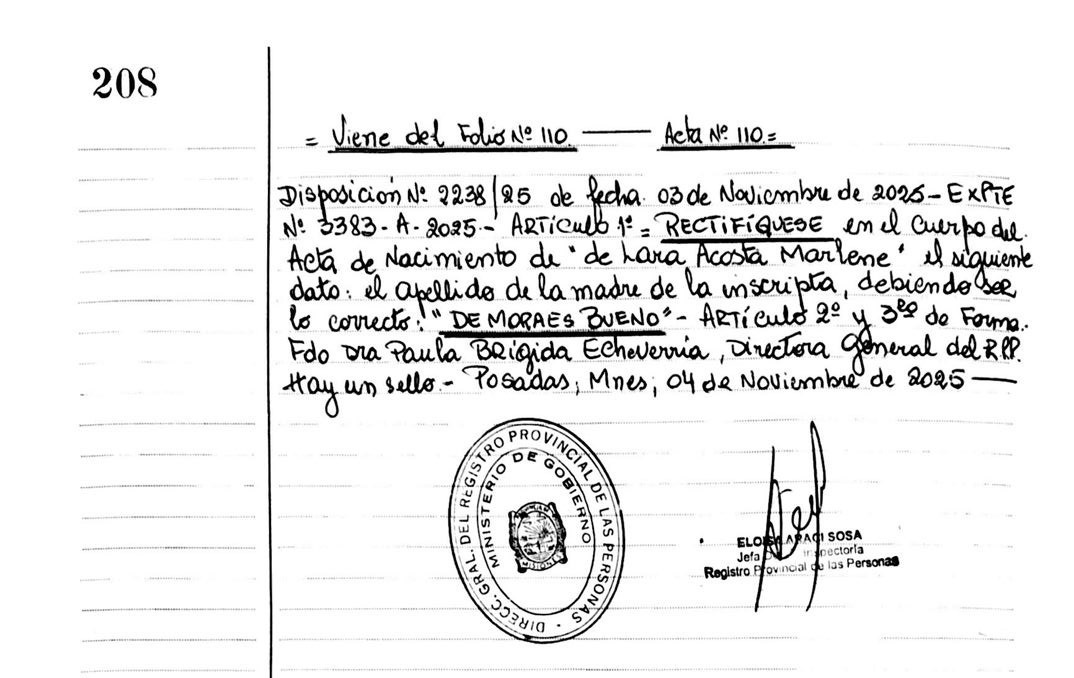 208
= Viene del Folio Nº 110 ——— Acta Nº 110 =
Disposición Nº 2238/25 de fecha 03 de Noviembre de 2025 - EXPTE
Nº 3383 - A - 2025 - ARTÍCULO 1º = RECTIFÍQUESE en el Cuerpo del
Acta de Nacimiento de "de Lara Acosta Marlene" el siguiente
dato: el apellido de la madre de la inscripta, debiendo ser
lo correcto: "DE MORAES BUENO" - ARTÍCULO 2º y 3ro de Forma.
Fdo Dra Paula Brígida Echeverría, Directora General del R.P.P.
Hay un sello.- Posadas, Mnes, 04 de Noviembre de 2025 —
DIRECC. GRAL. DEL REGISTRO PROVINCIAL DE LAS PERSONAS -
MINISTERIO DE GOBIERNO
MISIONES
ELOISA ARACI SOSA
Jefa Inspectoría
Registro Provincial de las Personas